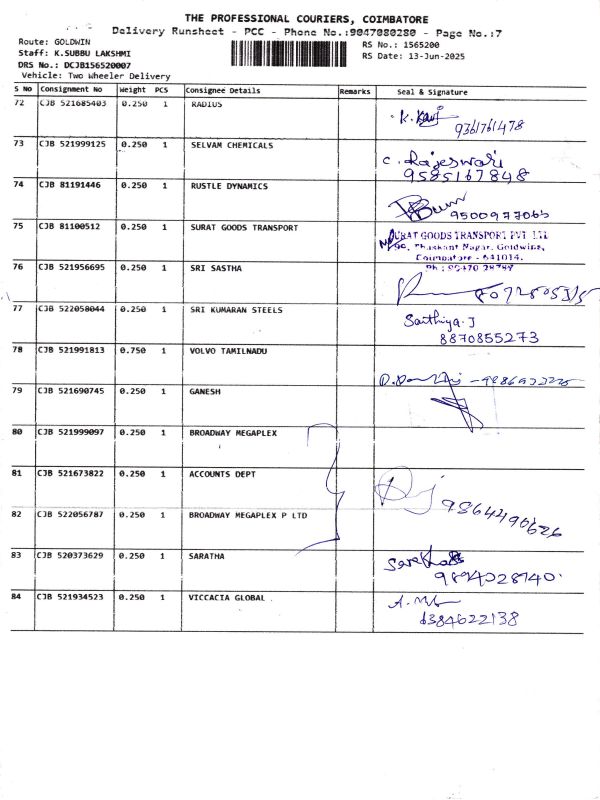 THE PROFESSIONAL COURIERS, COIMBATORE
Delivery Runsheet - PCC - Phone No.:9047080280 - Page No.:7
Route: GOLDWIN
Staff: K.SUBBU LAKSHMI
DRS No.: DCJB156520007
Vehicle: Two Wheeler Delivery
RS No.: 1565200
RS Date: 13-Jun-2025
S No Consignment No Weight PCS Consignee Details Remarks Seal & Signature
72 CJB 521685403 0.250 1 RADIUS
9361761478
73 CJB 521999125 0.250 1 SELVAM CHEMICALS C. Rajeswari
9585167848
74 CJB 81191446 0.250 1 RUSTLE DYNAMICS
9500977066
75 CJB 81100512 0.250 1 SURAT GOODS TRANSPORT SURAT GOODS TRANSPORT PVT. LTD
Nagar, Goldwins,
Coimbatore - 641014.
76 CJB 521956695 0.250 1 SRI SASTHA
77 CJB 522058044 0.250 1 SRI KUMARAN STEELS Saithiya. J
8870855273
78 CJB 521991813 0.750 1 VOLVO TAMILNADU
79 CJB 521690745 0.250 1 GANESH
80 CJB 521999097 0.250 1 BROADWAY MEGAPLEX
81 CJB 521673822 0.250 1 ACCOUNTS DEPT
9864490626
82 CJB 522056787 0.250 1 BROADWAY MEGAPLEX P LTD
83 CJB 520373629 0.250 1 SARATHA
9894028740
84 CJB 521934523 0.250 1 VICCACIA GLOBAL
6384622138